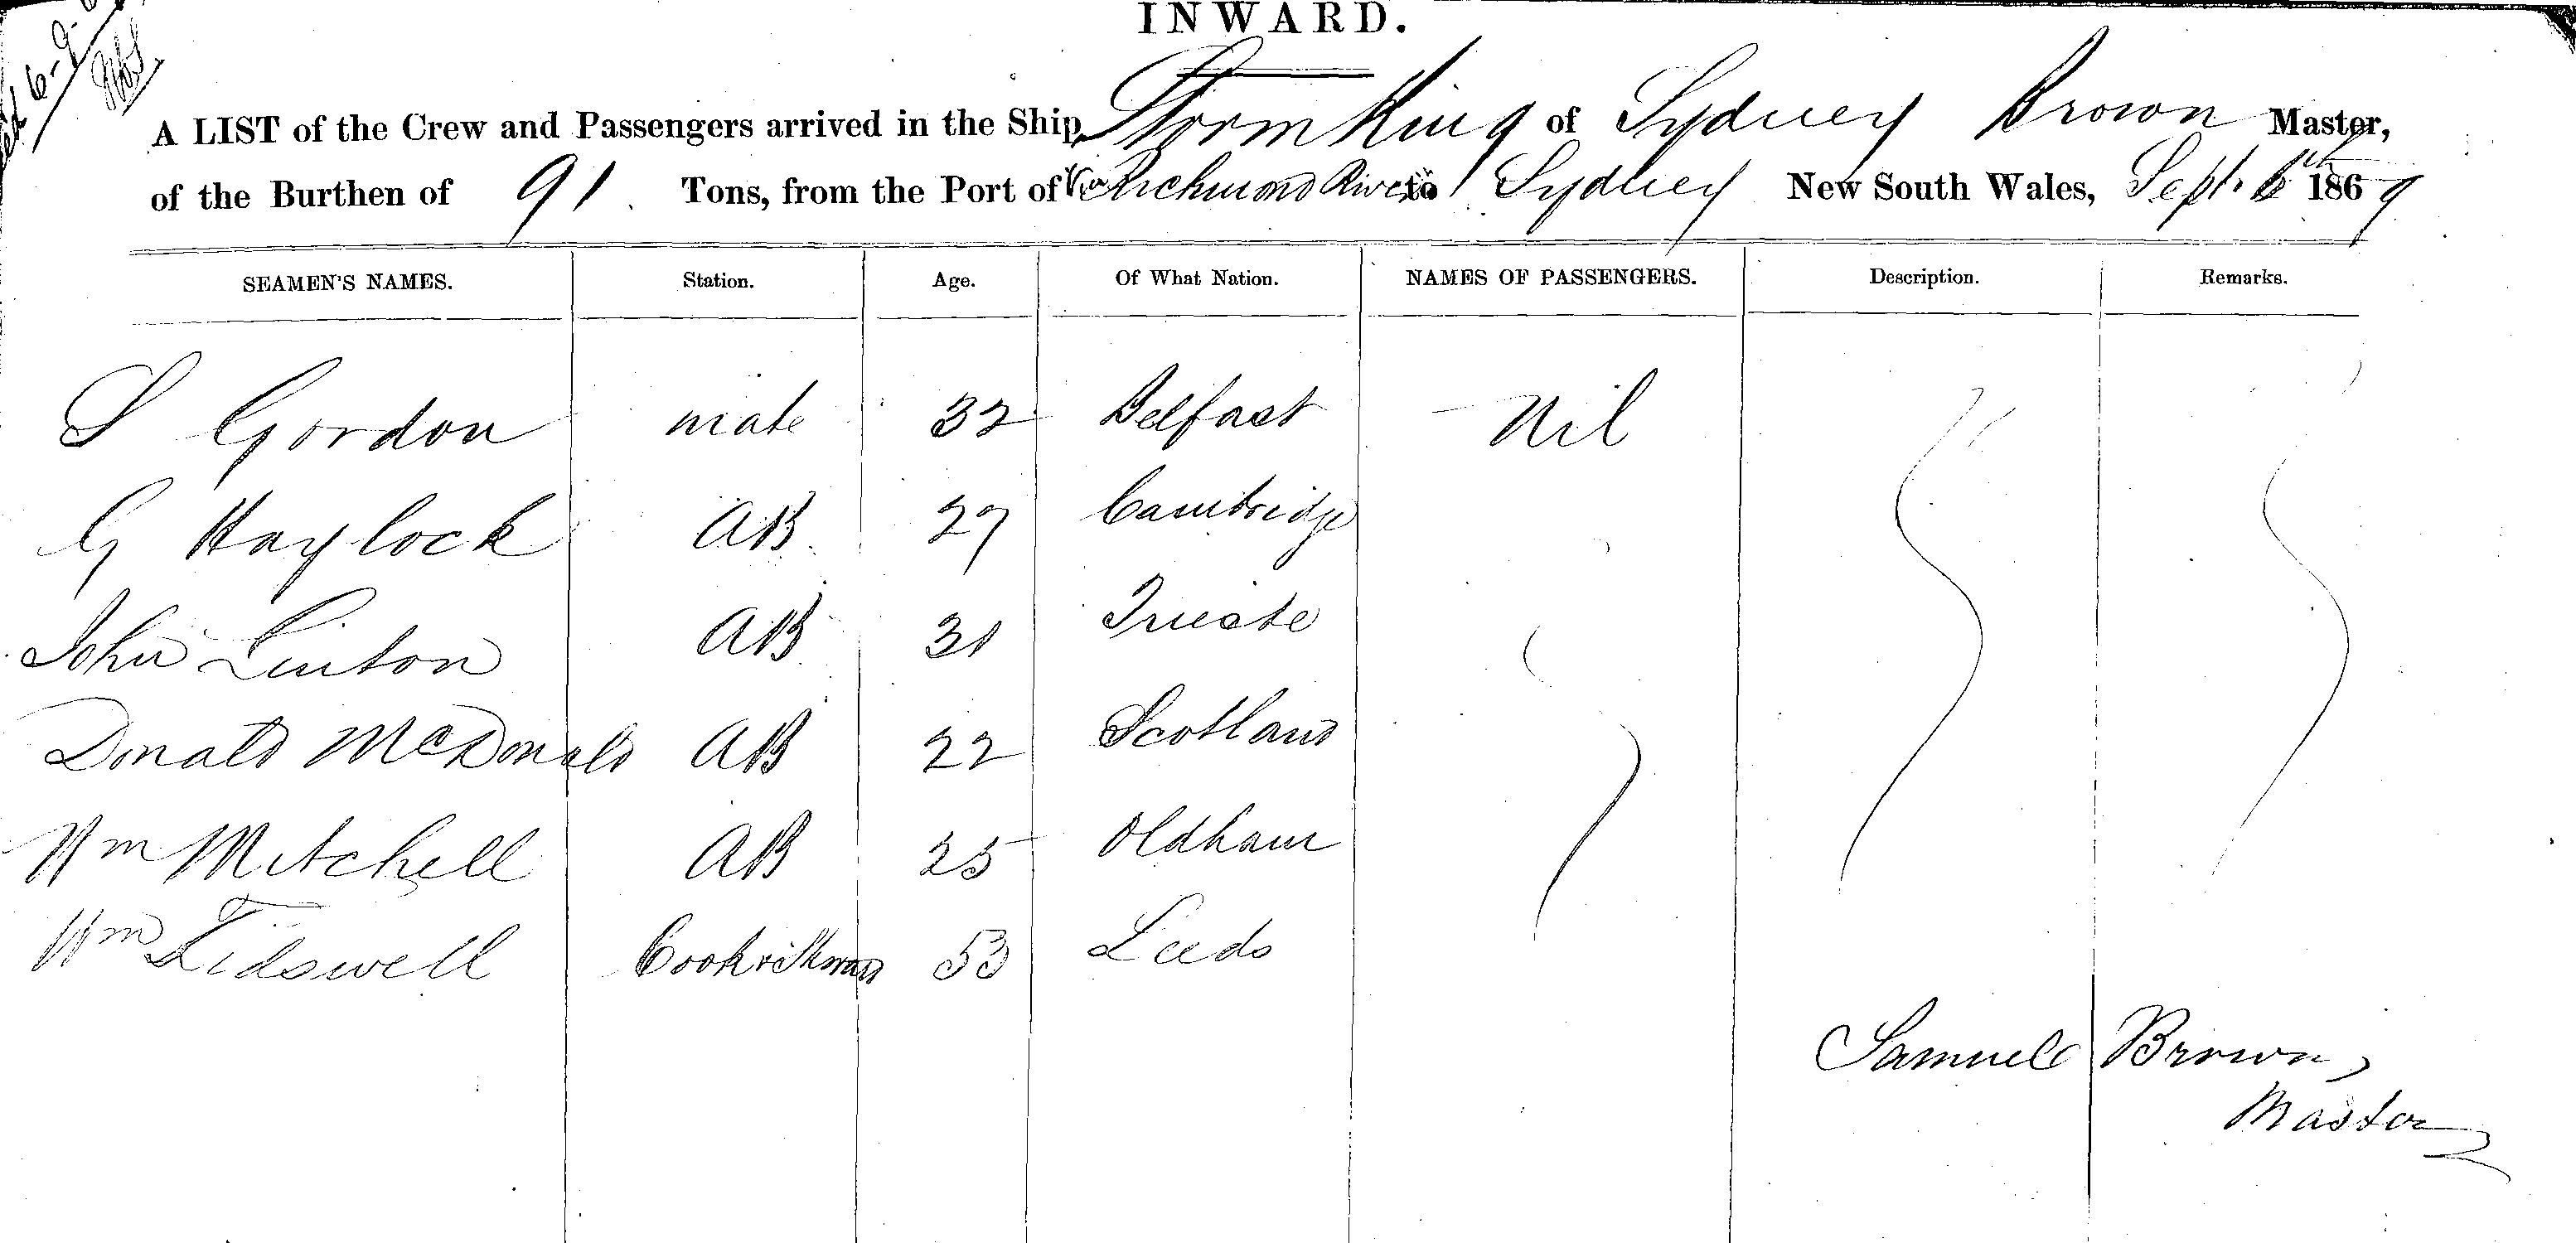 INWARD.
A LIST of the Crew and Passengers arrived in the Ship Storm King of Sydney Brown Master,
of the Burthen of 91 Tons, from the Port of Richmond River to Sydney New South Wales, Sept. 6th 1869
SEAMEN'S NAMES. Station. Age. Of What Nation. NAMES OF PASSENGERS. Description. Remarks.
S Gordon mate 32 Belfast Nil
G Haylock AB 27 Cambridge
John Linton AB 31 Trieste
Donald McDonald AB 22 Scotland
Wm Mitchell AB 25 Oldham
Wm Tidswell Cook & Stward 53 Leeds
Samuel Brown,
Master